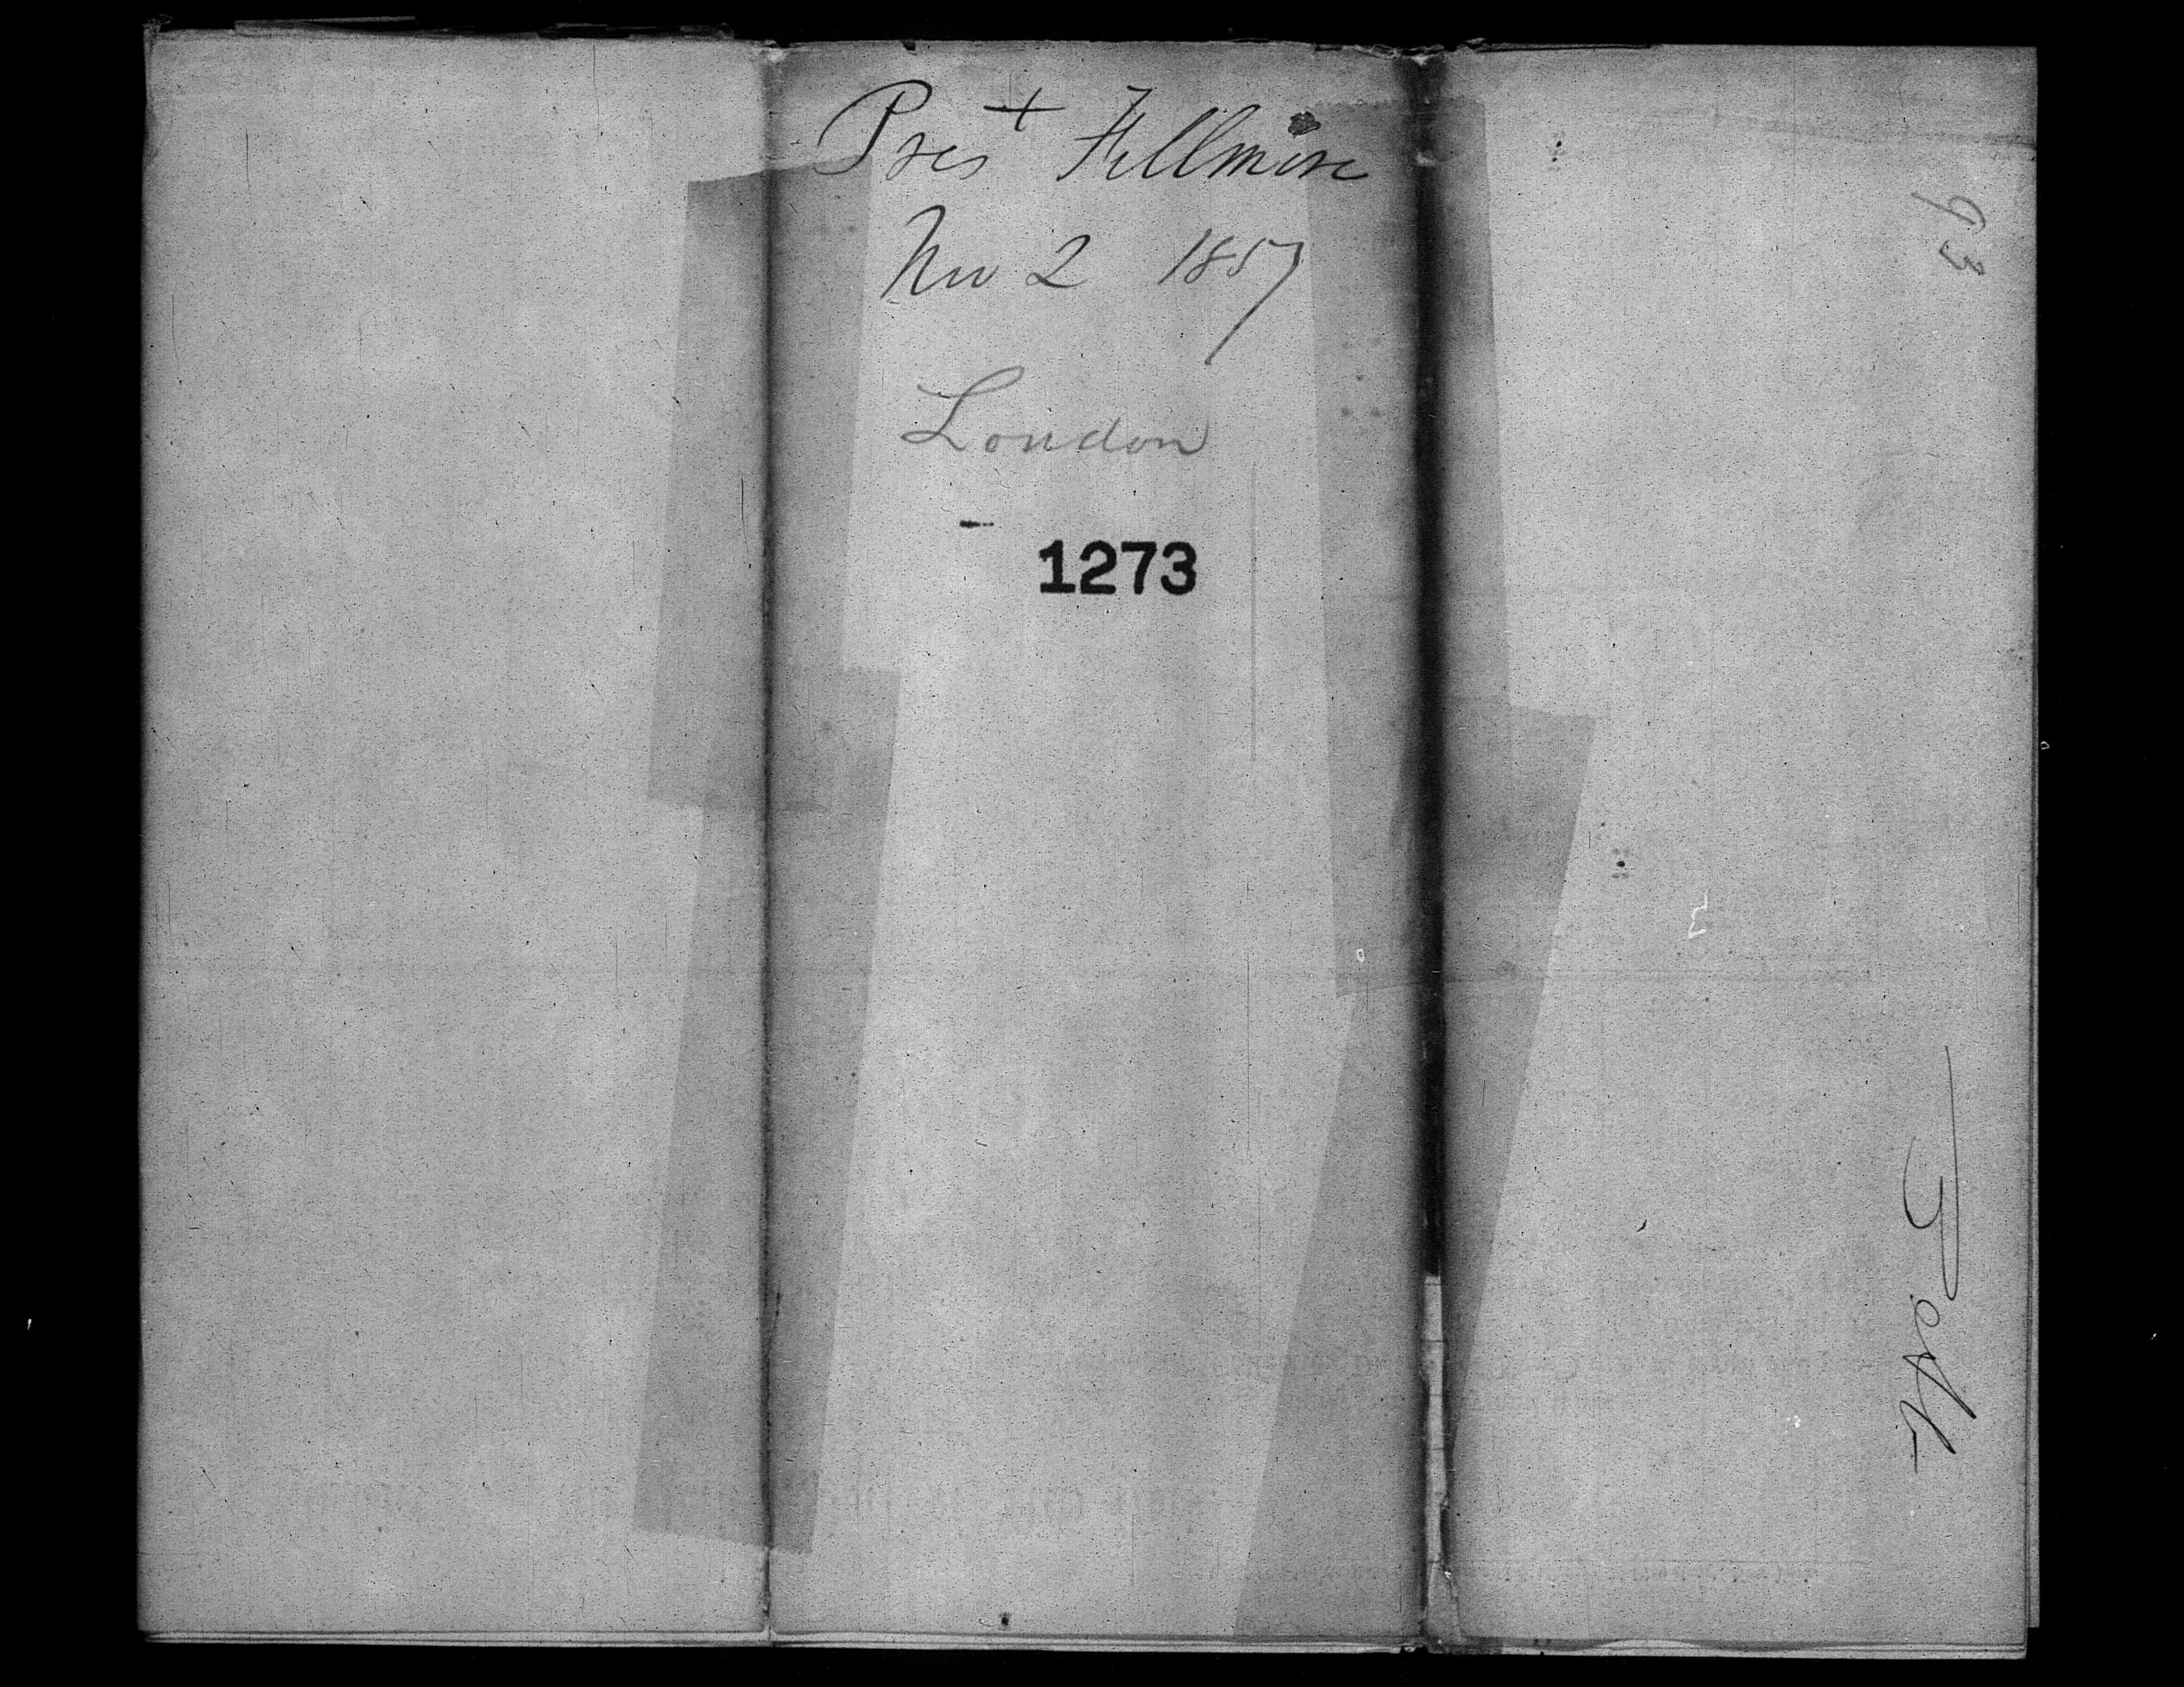 Prest Fillmore
Nov 2 1857
London
1273
93